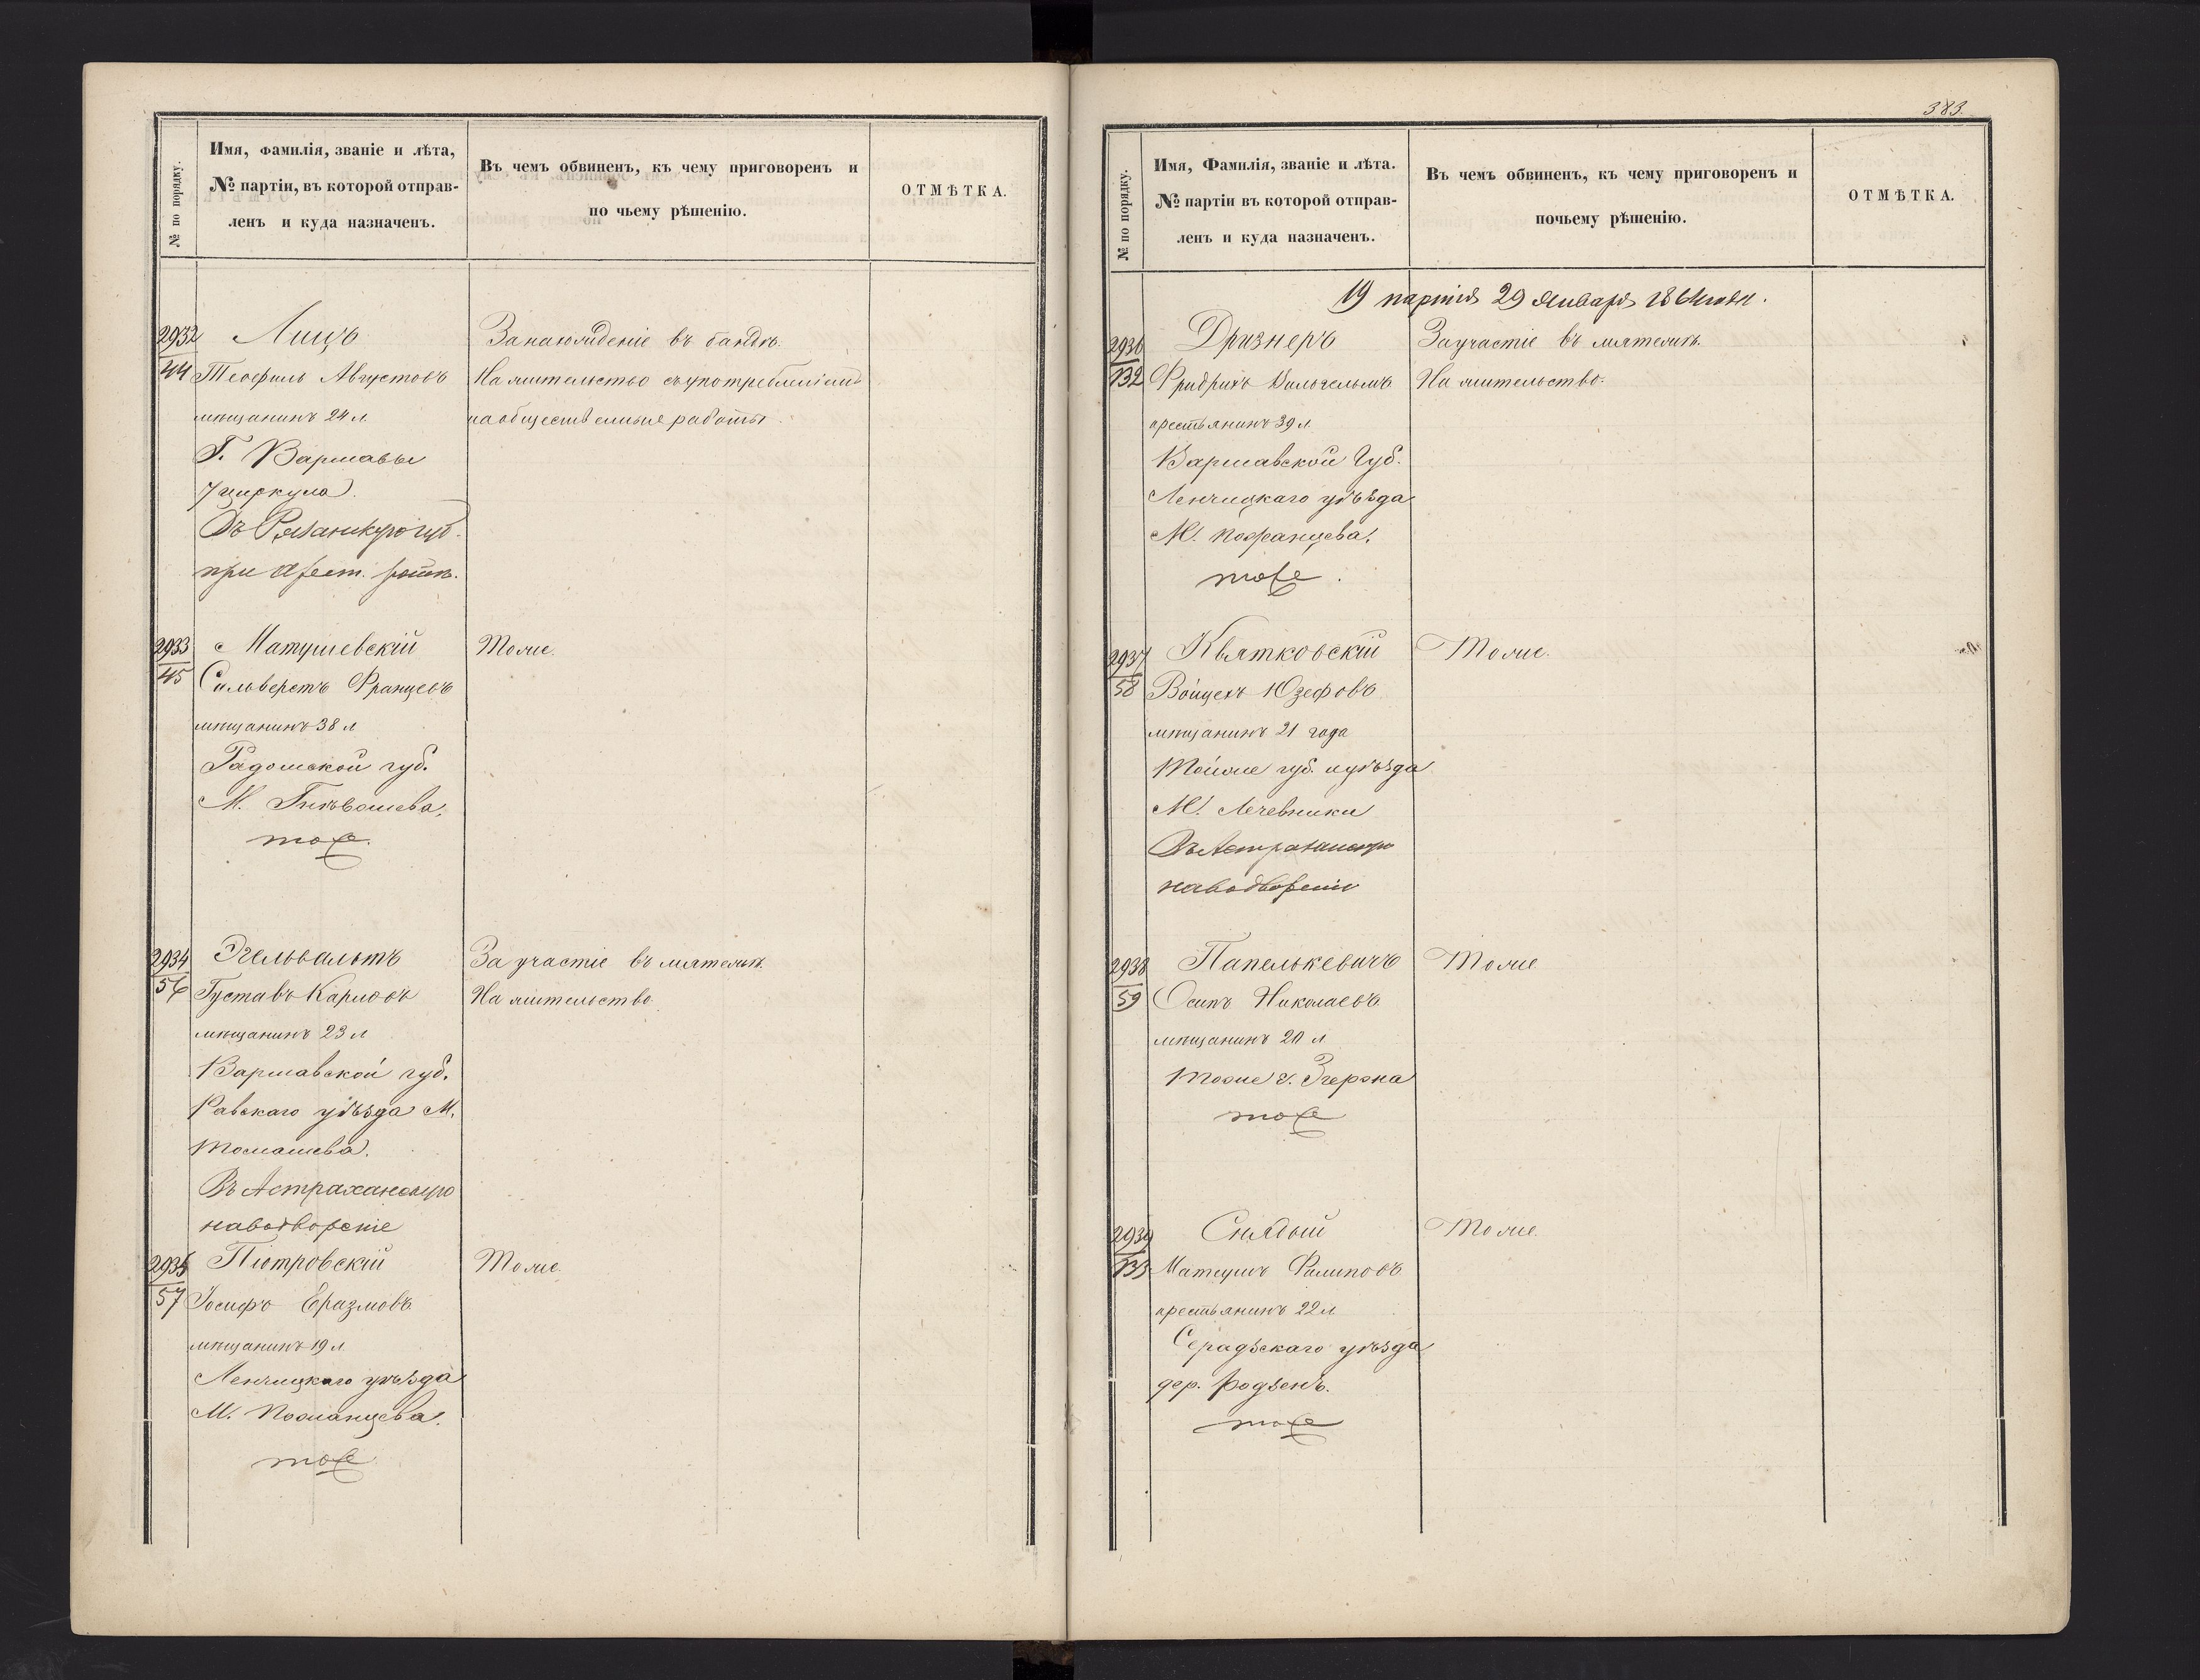 № по порядку.
Имя, Фамилія, званіе и лѣта,
№ партіи, въ которой отправ-
ленъ и куда назначенъ.
Въ чемъ обвиненъ, къ чему приговоренъ и
по чьему рѣшенію.
ОТМѢТКА.
2932
44
Лицъ
Теофиль Августовъ
мѣщанинъ 24 л
Г. Варшавы
7 циркула
Въ Рязанскую губ.
при Арест. ротѣ.
За нахожденіе въ бандѣ.
На жительство съ употребленіемъ
на общественныя работы.
2933
45
Матушевскій
Сильверстъ Францевъ
мѣщанинъ 38 л
Радомской губ.
М. Гнѣвошева.
тоже.
Тоже.
2934
56
Эгельвальтъ
Густавъ Карловъ
мѣщанинъ 23 л
Варшавской губ.
Равскаго уѣзда М.
Томашева.
Въ Астраханскую
на водвореніе
За участіе въ мятежѣ.
На жительство
2935
57
Піотровскій
Іосифъ Еразмовъ
мѣщанинъ 19 л
Ленчицкаго уѣзда
М.
тоже
Тоже.
383.
№ по порядку.
Имя, Фамилія, званіе и лѣта.
№ партіи въ которой отправ-
ленъ и куда назначенъ.
Въ чемъ обвиненъ, къ чему приговоренъ и
почьему рѣшенію.
ОТМѢТКА.
19 партія 29 Января 1864 года.
2936
132
Дризнеръ
Фридрихъ Вильгельмъ
крестьянинъ 39 л
Варшавской Губ.
Ленчицкаго уѣзда
М.
тоже.
За участіе въ мятежѣ.
На жительство.
2937
58
Квятковскій
Войцехъ Юзефовъ
мѣщанинъ 21 года
Тойже губ. и уѣзда
М.
Въ Астраханскую
на водвореніе
Тоже.
2938
59
Папелькевичъ
Осипъ Николаевъ
мѣщанинъ 20 л
Тоже г. Згержа
тоже
Тоже
2939
133
Снядый
Матеушъ Филиповъ
крестьянинъ 22 л
Серадзскаго уѣзда
дер.
тоже
Тоже.